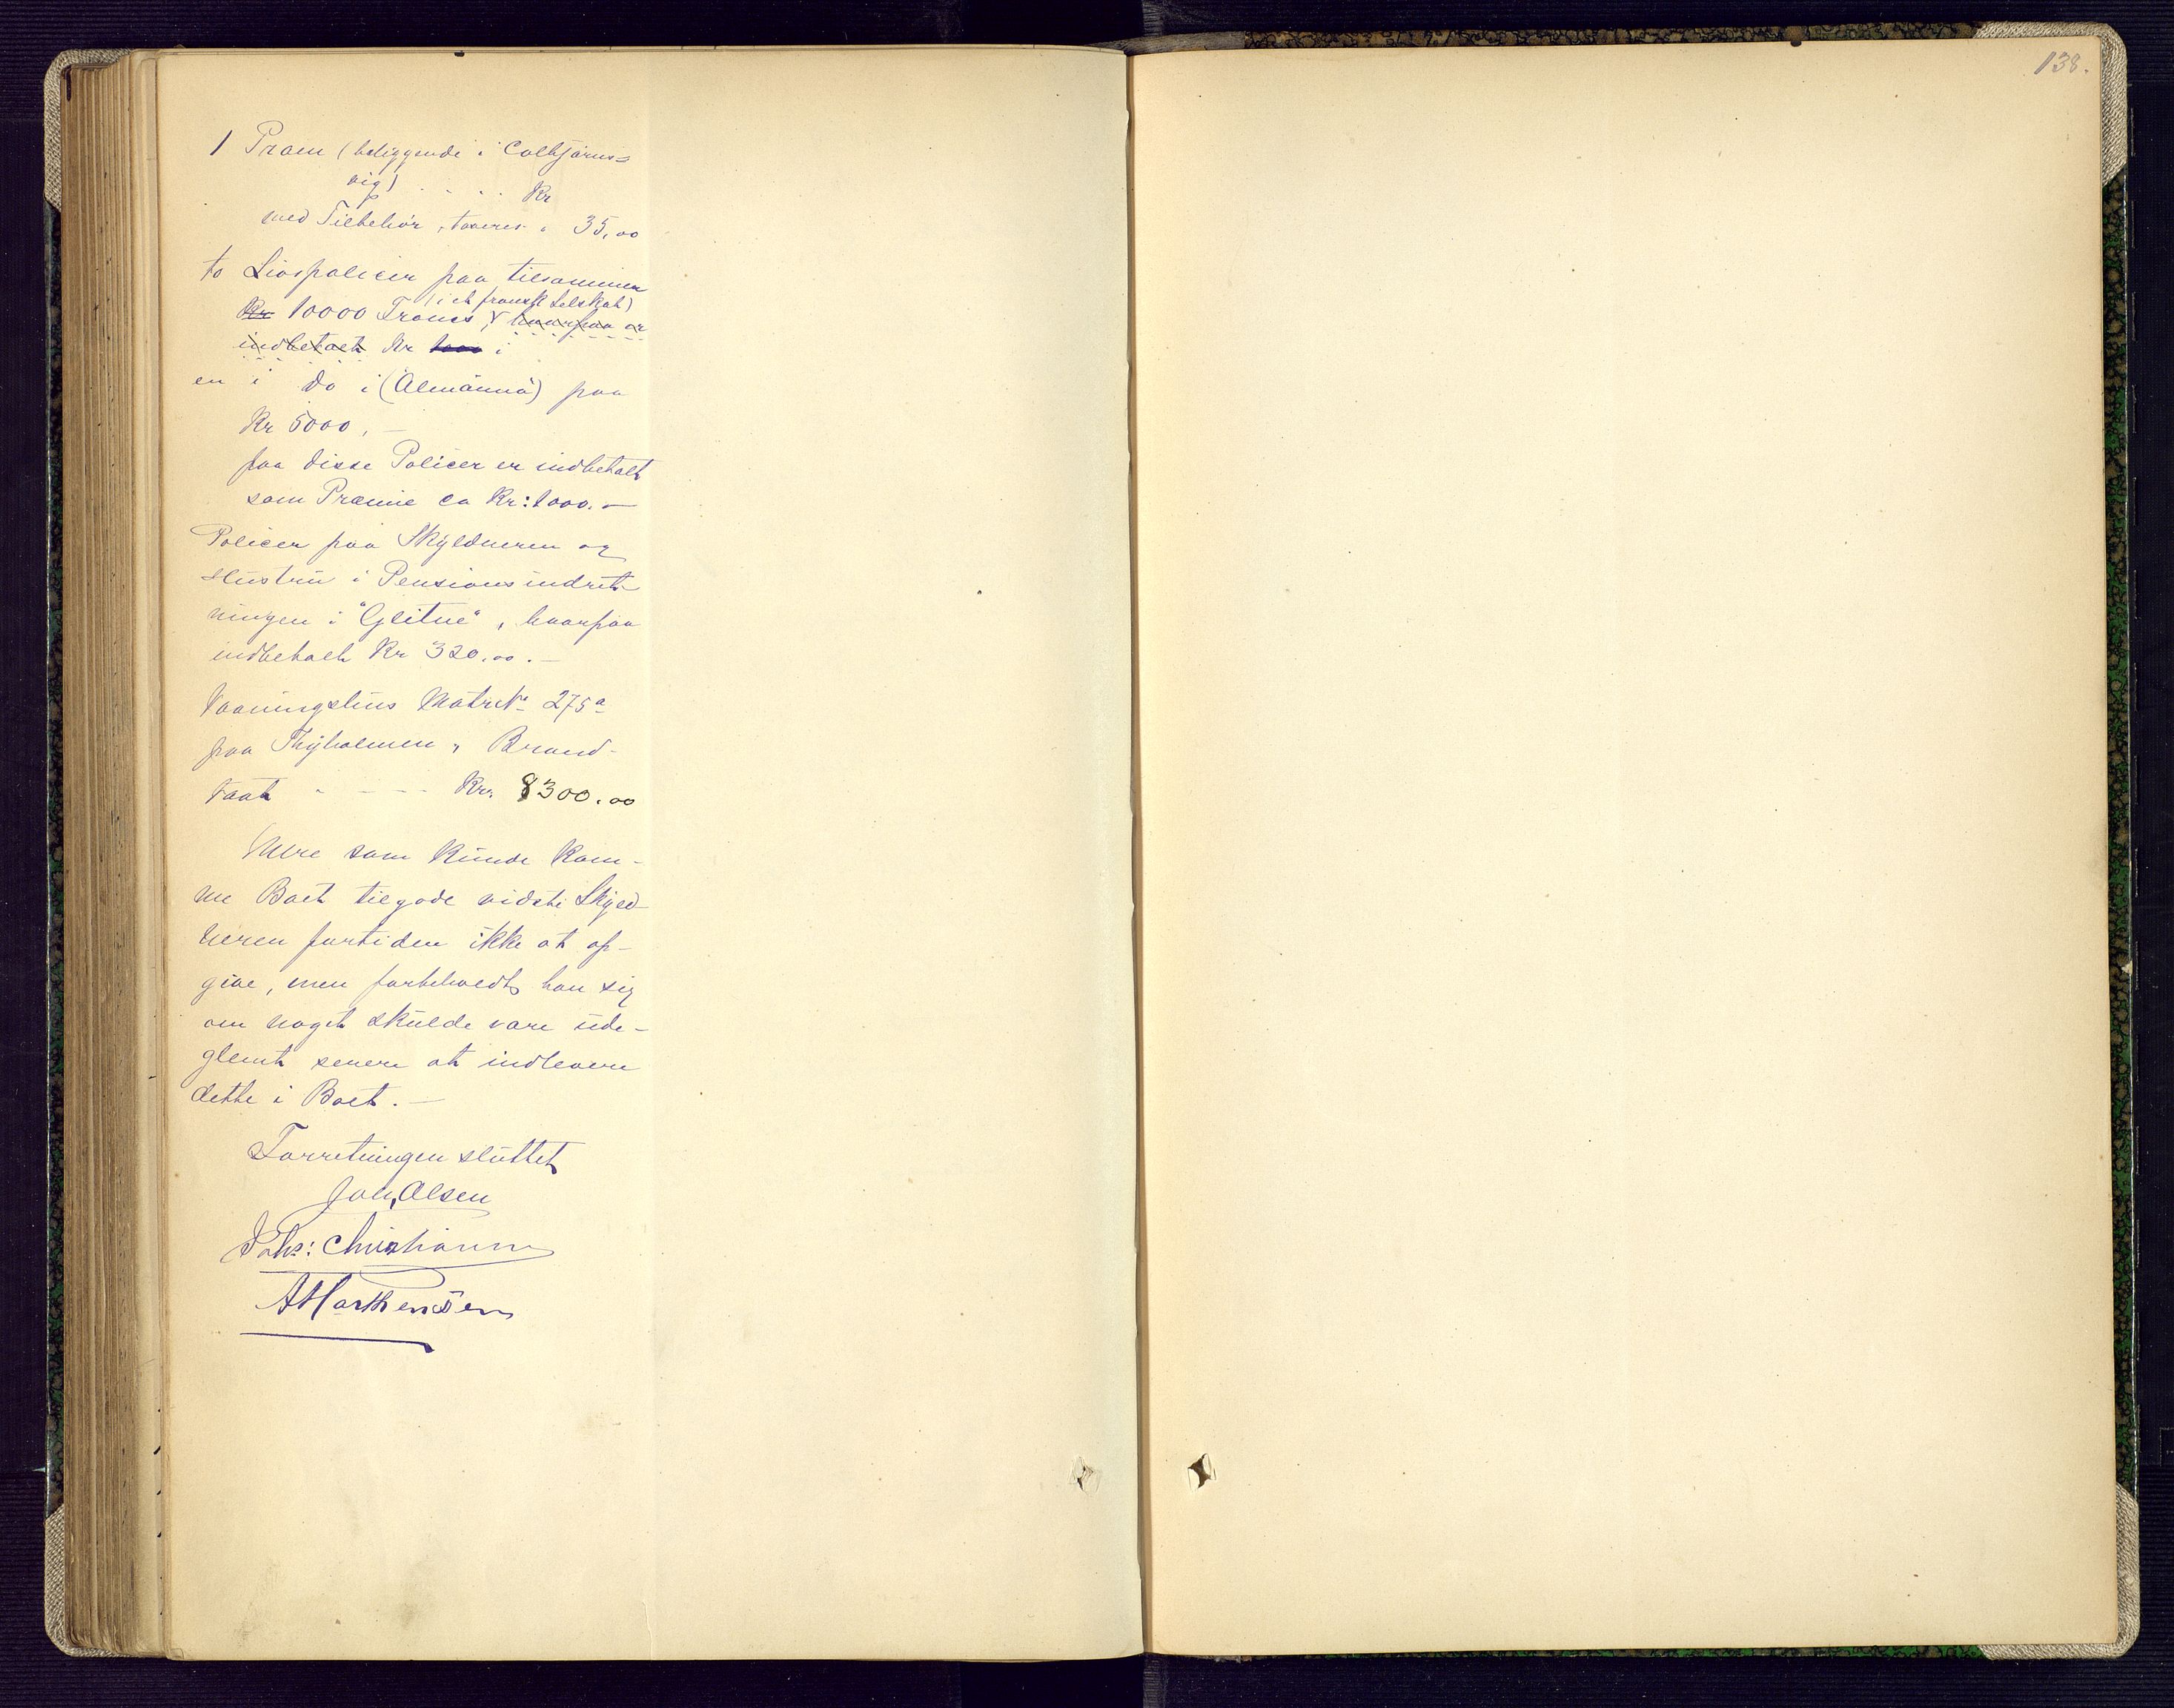 138.
1 Pram (beliggende i Colbjørns=
vig) . . . . Kr
med Tilbehør, taxeres " 35,00
to Livspolicer paa tilsammen
(i et fransk Selskab)
Kr 10000 Francs, hvorpaa er
indbetalt Kr 1000 i
en i do i (Almänna) paa
Kr 5000,–
paa disse Policer er indbetalt
som Præmie ca Kr: 1000.–
Policer paa Skyldneren og
Hustru i Pensionsindret-
ningen i "Glitne", hvorpaa
indbetalt Kr 320.00.–
Vaaningshus Matr No 275a
paa Thyholmen, Brand-
taxt - - - - Kr. 8300.00
Mere som kunde kom-
me Boet tilgode vidste Skyld-
neren fortiden ikke at op-
give, men forbeholdt han sig
om noget skulde være ude-
glemt senere at indlevere
dette i Boet.–
Forretningen sluttet
Joh, Olsen
Johs: Christians
A Marthensen